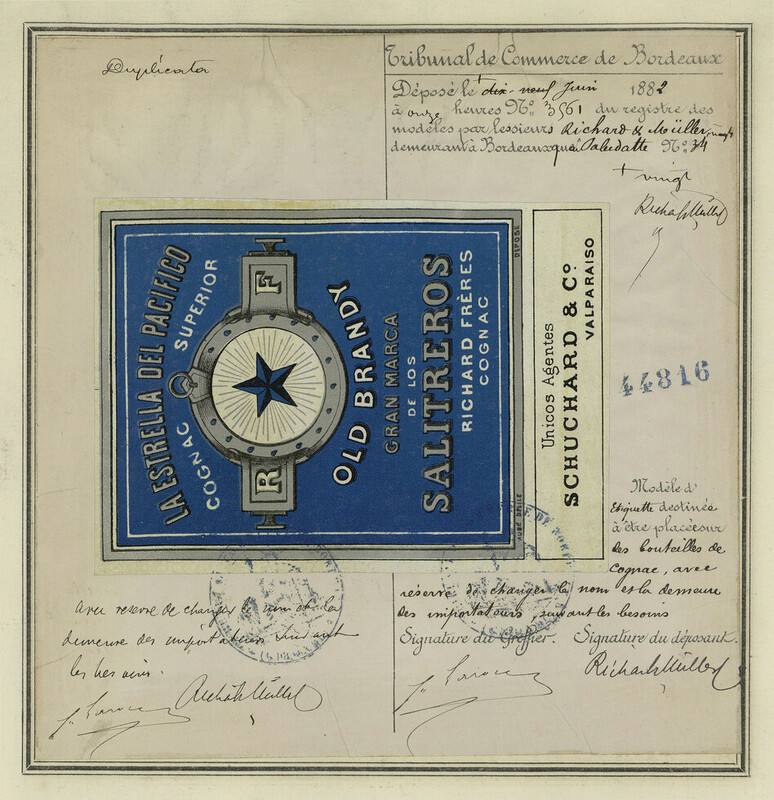 Duplicata
Tribunal de Commerce de Bordeaux
Déposé le + dix-neuf Juin 1882
à onze heures No. 3561 du registre des
modèles par les sieurs Richard & Müller
demeurant à Bordeaux quai Paludatte No. 34
+ vingt
Richard & Müller
LA ESTRELLA DEL PACIFICO
COGNAC SUPERIOR
R F
OLD BRANDY
GRAN MARCA
DE LOS
SALITREROS
RICHARD FRÈRES
COGNAC
DÉPOSÉ
Unicos Agentes
SCHUCHARD & Co
VALPARAISO
44816
Modèle d'
Etiquette destinée
à être placée sur
des bouteilles de
Cognac, avec
réserve de changer le nom et la demeure
des importateurs, suivant les besoins
Signature du Greffier. Signature du déposant.
Richard & Müller
avec reserve de changer le nom et la
demeure des importateurs suivant
les besoins.
Richard & Müller